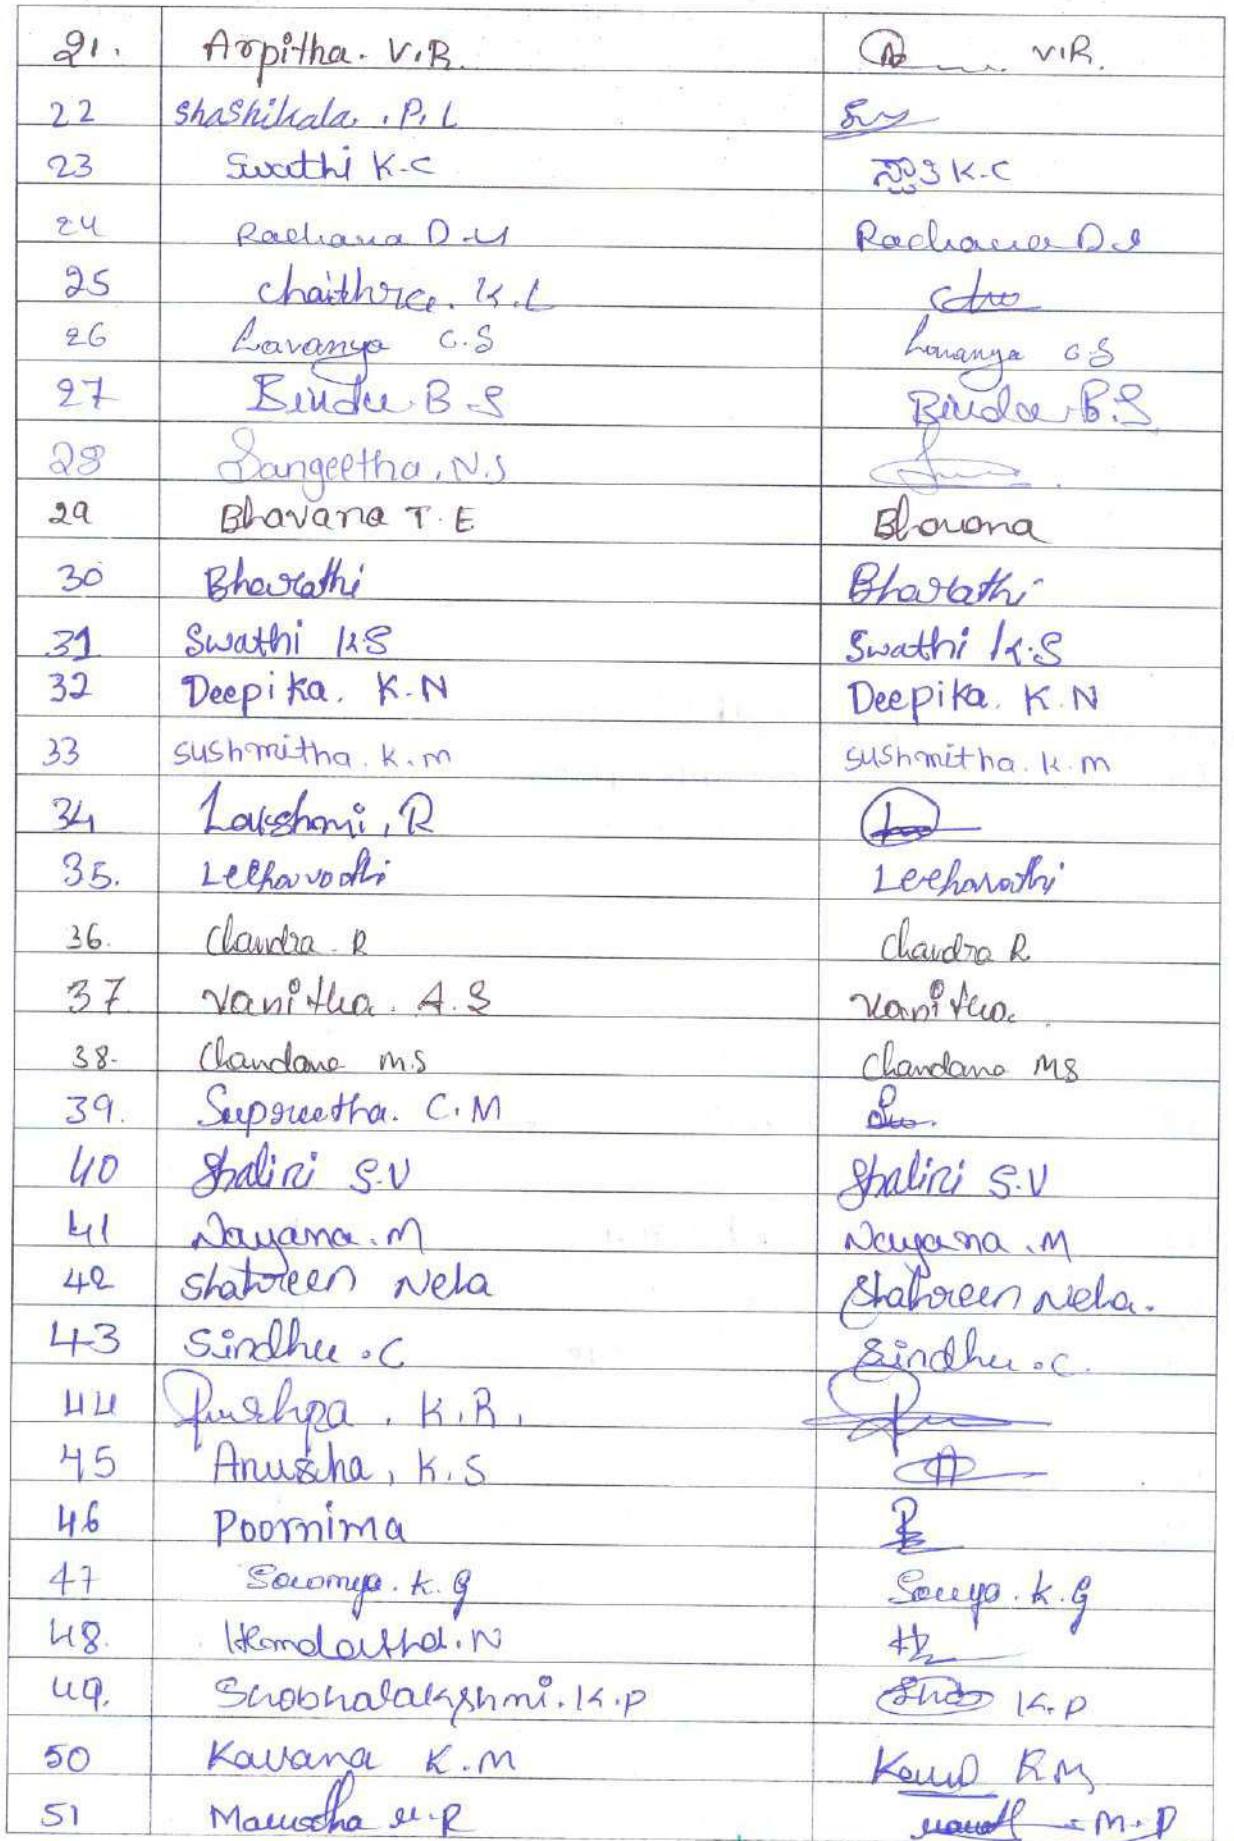 21. Arpitha. V.R. V.R.
22 Shashikala. P. L
23 Swathi K-C ಸ್ವಾತಿ K.C
24 Rachana D.U Rachana D
25 Chaithra. K.L
26 Lavanya C.S Lavanya C.S
27 Bindu B.S Bindu B.S
28 Sangeetha. N.S
29 Bhavana T. E Bhavana
30 Bharathi Bharathi
31 Swathi KS Swathi K.S
32 Deepika. K.N Deepika. K.N
33 sushmitha. k.m sushmitha. k.m
34 Lakshmi, R
35. Leelavathi Leelavathi
36. Chandra. R Chandra R
37 Vanitha. A.S Vanitha.
38. Chandana M.S Chandana MS
39. Supreetha. C.M
40 Shalini S.V Shalini S.V
41 Nayana. M Nayana. M
42 Shahreen Neha Shahreen Neha.
43 Sindhu .C Sindhu .C.
44 Pushpa, K.R.
45 Anusha, K.S
46 Poornima
47 Sowmya. K. G Sowmya. K. G
48. Hemalatha. N
49. Shobhalakshmi. K.P K.P
50 Kavana K.M K.M
51 Mamatha M.R